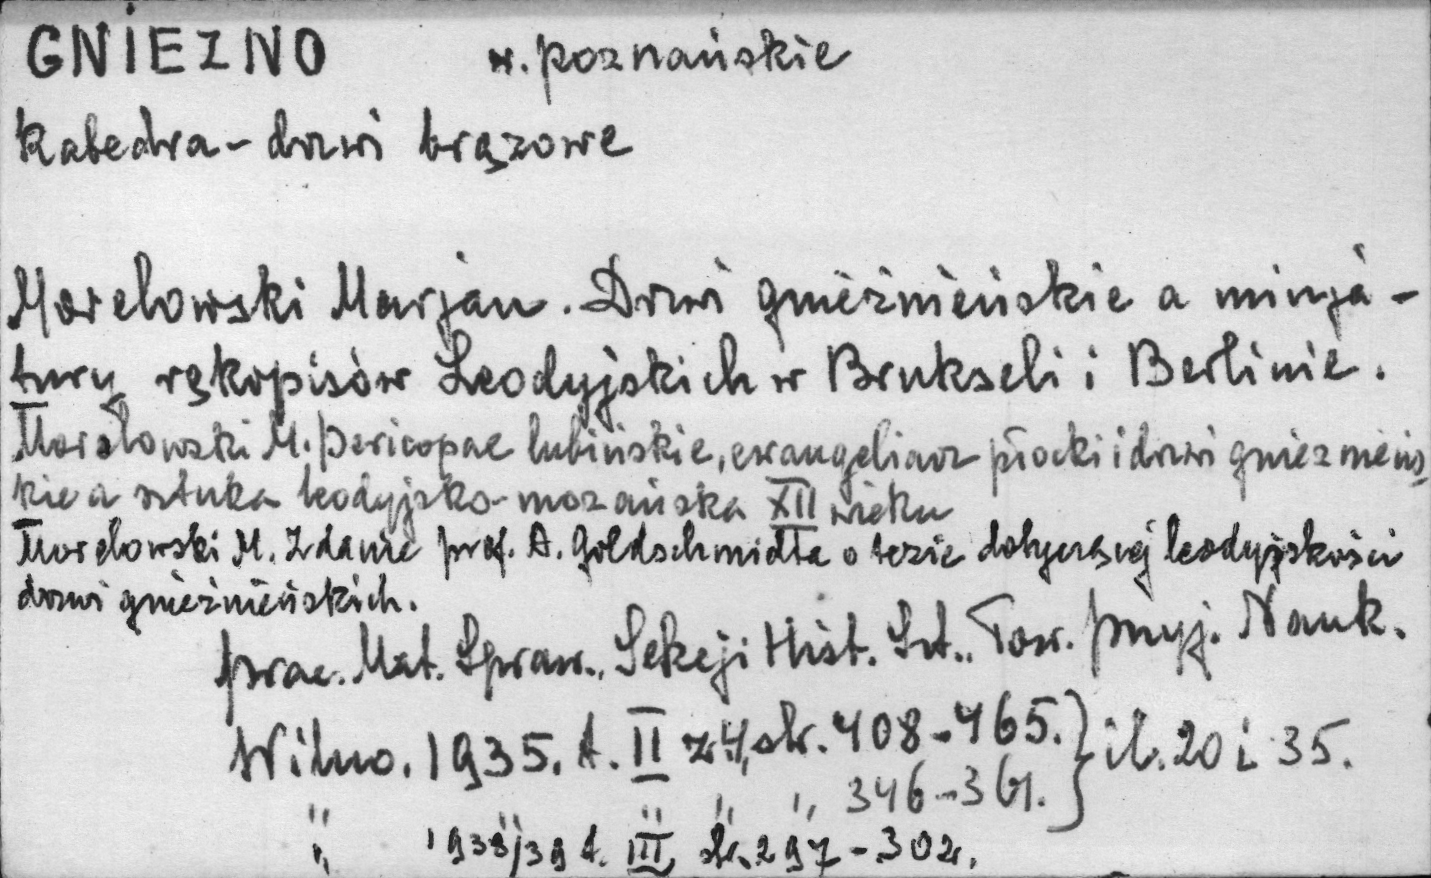 GNIEZNO w. poznańskie
Katedra - drzwi brązowe
Morelowski Marjan. Drzwi gnieźnieńskie a minja-
tury rękopisów Leodyjskich w Brukseli i Berlinie.
Morelowski M. Pericopae lubińskie, ewangeliarz płocki i drzwi gnieźnieńs
kie a sztuka leodyjsko-mozańska XII wieku
Morelowski M. Zdanie prof. A. Goldschmidta o tezie dotyczącej leodyjskości
drzwi gnieźnieńskich.
Prac. Mat. Spraw. Sekcji Hist. Szt. Tow. Przyj. Nauk.
Wilno. 1935. t. II z. 4, str. 408-465. } il. 20 i 35.
" " " " " 346-361.
" 1938/39 t. III str. 297-302.